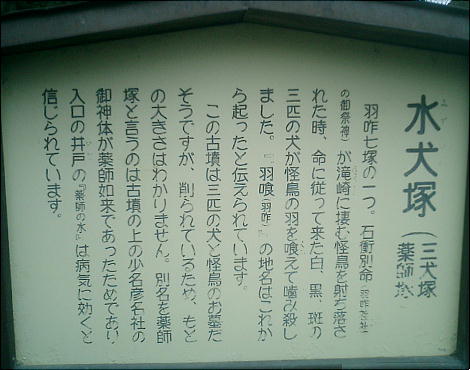 水犬塚（三犬塚
薬師塚）
羽咋七塚の一つ。石衝別命（羽咋神社
の御祭神）が滝崎に棲む怪鳥を射ち落さ
れた時、命に従って来た白、黒、斑の
三匹の犬が怪鳥の羽を喰えて噛み殺し
ました。『羽喰（羽咋）』の地名はこれか
ら起ったと伝えられています。
この古墳は三匹の犬と怪鳥のお墓だ
そうですが、削られているため、もと
の大きさはわかりません。別名を薬師
塚と言うのは古墳の上の少名彦名社の
御神体が薬師如来であったためであり、
入口の井戸の『薬師の水』は病気に効くと
信じられています。